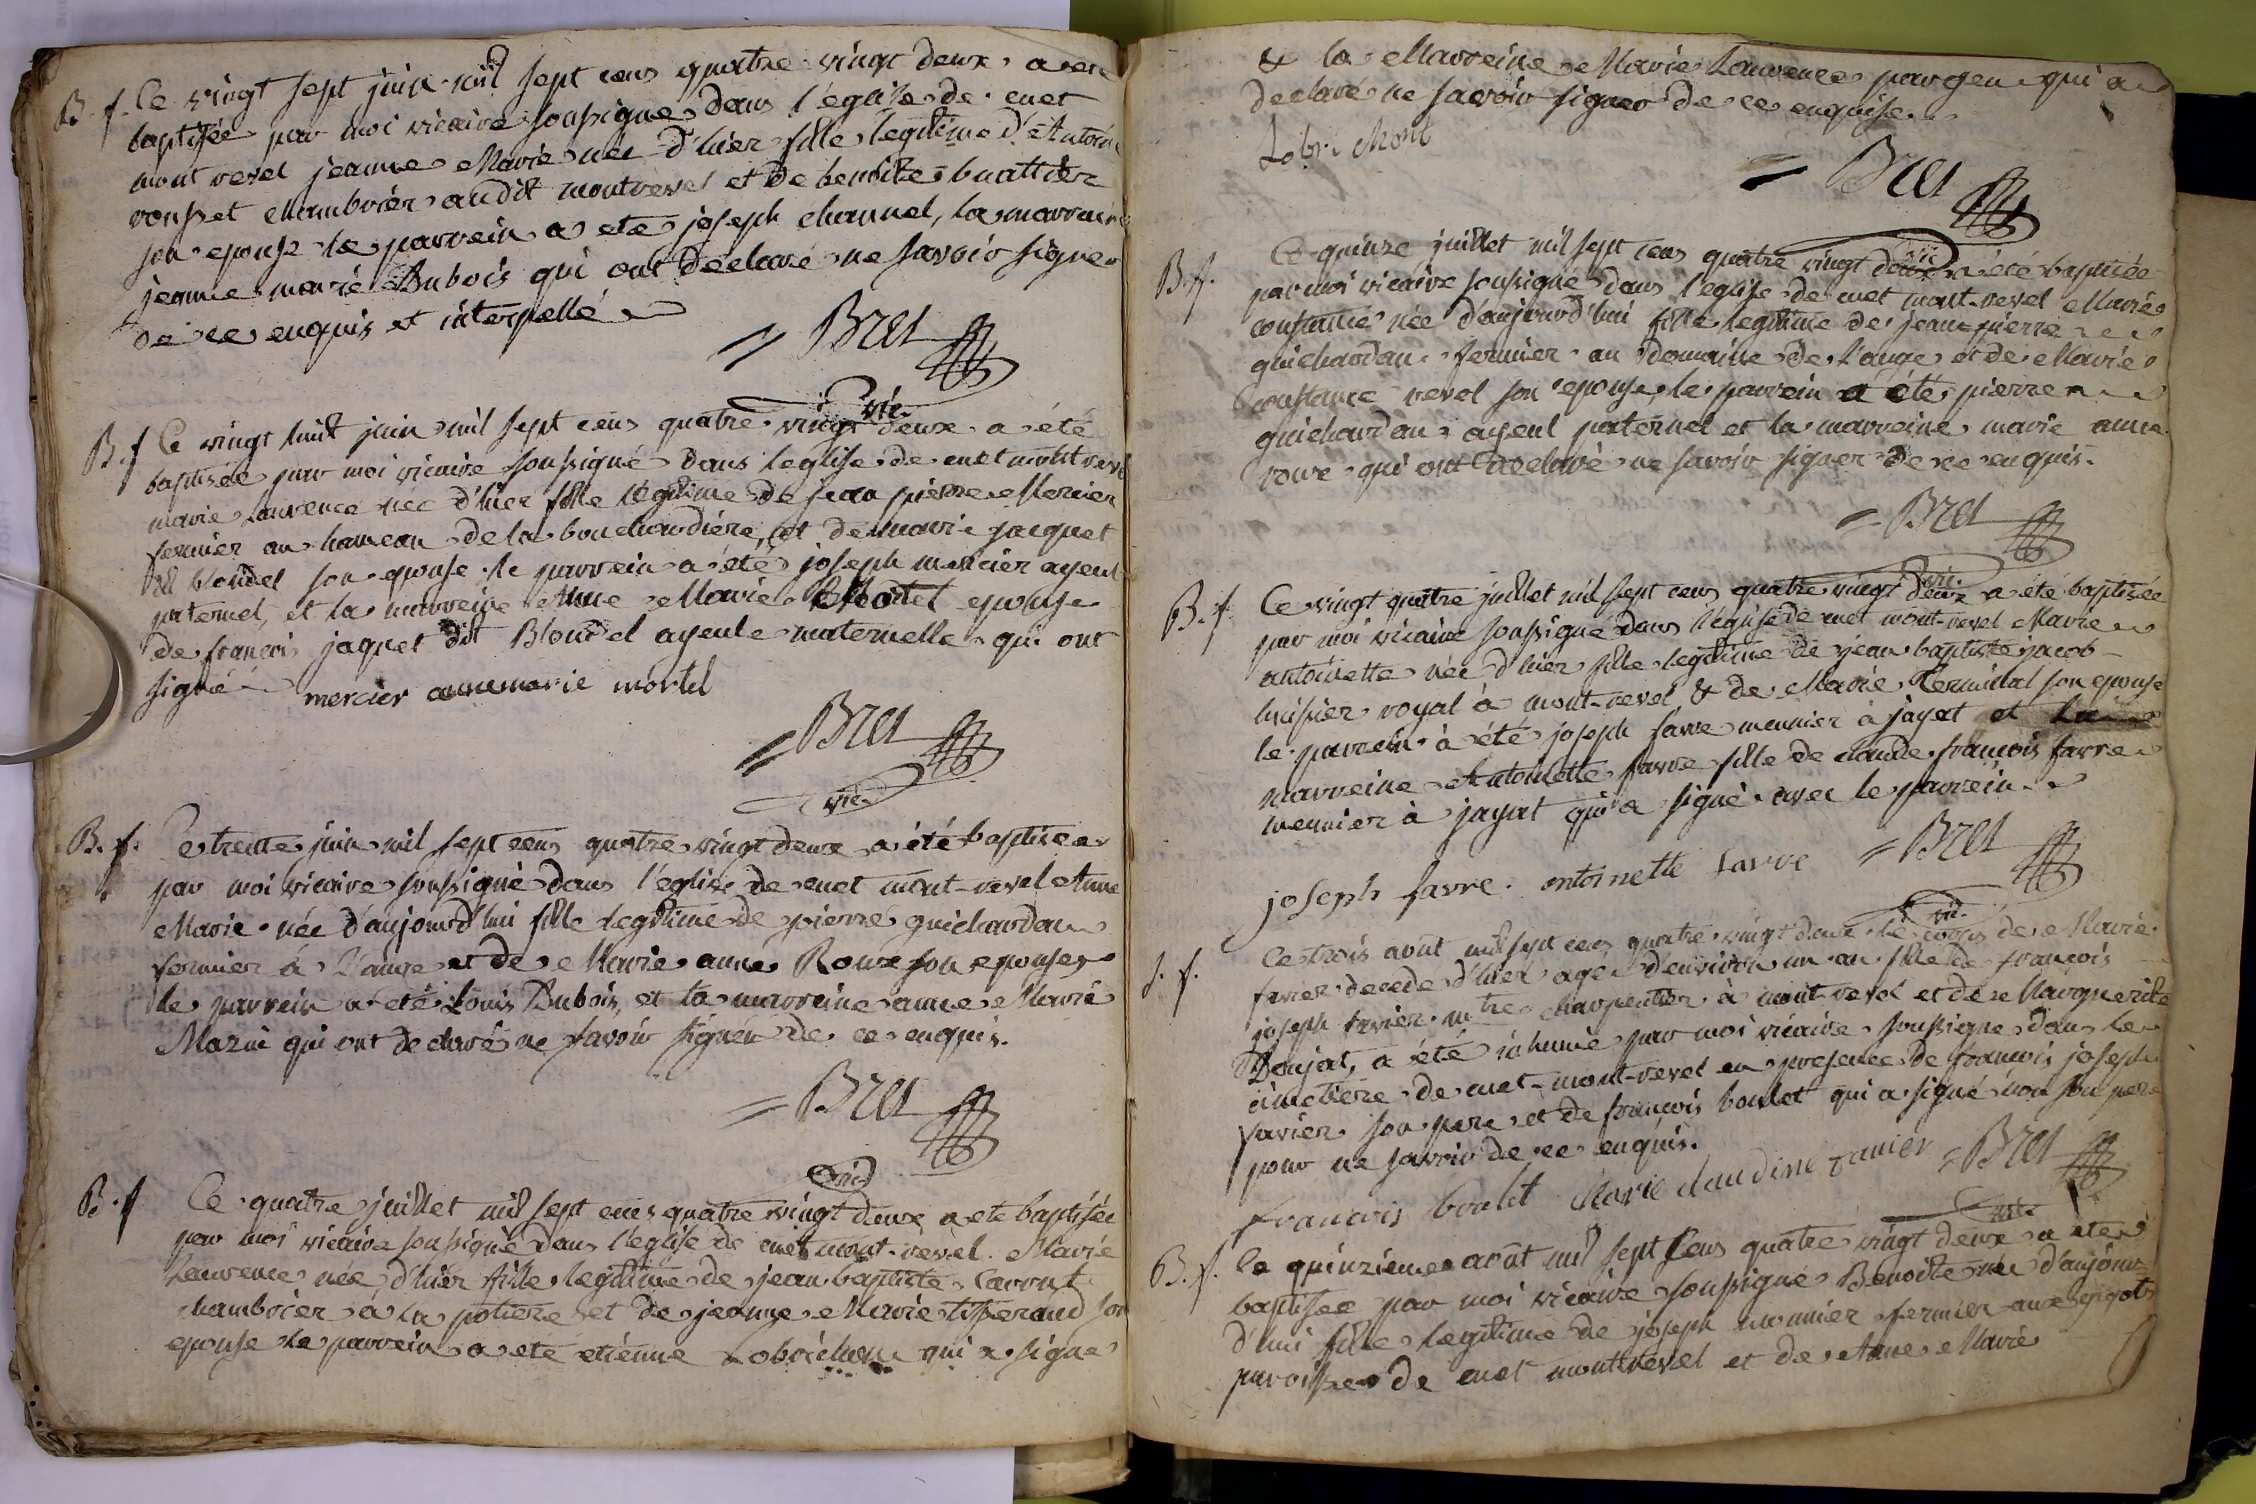 B. f. Ce vingt sept juin mil sept cens quatre vingt deux a ete
baptisée par moi vicaire soussigné dans l'eglise de cuet
mont revel jeanne Marie née d'hier fille legitime d'Antoine
rousset chambrier audit montrevel et de benoite buattier
son epouse le parrein a ete joseph channel, la marreine
jeanne marie Dubois qui ont déclaré ne savoir signer
de ce enquis et interpellé
= Bret
vic.
B. f Ce vingt huit juin mil sept cens quatre vingt deux a été
baptisée par moi vicaire soussigné dans l'eglise de cuet mont revel
marie laurence née d'hier fille légitime de jean pierre Mercier
fermier au hameau de la bouchardiére, et de marie jacquet
blondel son epouse le parrein a été joseph mercier ayeul
paternel, et la marreine Anne Marie Mortel epouse
de francois jaquet dit Blondel ayeule maternelle qui ont
signé
mercier anne marie mortel
= Bret
vic.
B. f. Ce trente juin mil sept cens quatre vingt deux a été baptisée
par moi vicaire soussigné dans l'eglise de cuet mont-revel Anne
Marie née d'aujourd'hui fille legitime de pierre guichardan
fermier à l'ange et de Marie anne Roux son epouse
le parrein a été Louis Dubois, et la marreine anne Marie
Mazui qui ont déclaré ne savoir signer de ce enquis.
= Bret
vic.
B. f Ce quatre juillet mil sept cens quatre vingt deux a ete baptisée
par moi vicaire soussigné dans l'eglise de cuet mont-revel Marie
Laurence née d'hier fille legitime de jean baptiste
chambrier à la potiere et de jeanne Marie tisserand son
epouse le parrein a eté etienne Lobrichon qui a signé
& la Marreine Marie Laurence pargeu qui a
declaré ne savoir signer de ce enquise.
= Bret
vic.
B. f. Ce quinze juillet mil sept cens quatre vingt deux a été baptisée
par moi vicaire soussigné dans l'eglise de cuet mont-revel Marie
constance née d'aujourd'hui fille legitime de jean pierre
guichardan fermier au domaine de l'ange et de Marie
constance revel son epouse le parrein a été pierre
guichardan ayeul paternel et la marreine marie anne
roux qui ont declaré ne savoir signer de ce enquis.
= Bret
vic.
B. f. Ce vingt quatre juillet mil sept cens quatre vingt deux a été baptisée
par moi vicaire soussigné dans l'eglise de cuet mont-revel Marie
antoinette née d'hier fille legitime de jean baptiste jacob
huissier royal à mont-revel & de Marie son epouse
le parrein à été joseph favre meunier à jayat et la
marreine Antoinette favre fille de claude françois favre
meunier à jayat qui a signé avec le parrein
joseph favre. antoinette favre
= Bret
vic.
S. f. Ce trois août mil sept cens quatre vingt deux le corps de Marie
favier decedé d'hier agée d'environ un an fille de françois
joseph favier mtre charpentier à mont-revel et de Marguerite
Donjat, a été inhumé par moi vicaire soussigné dans le
cimetière de cuet-mont-revel en presence de françois joseph
favier son pere et de françois boulet qui a signé non son pere
pour ne savoir de ce enquis.
francois boulet Marie claudine
= Bret
vic.
B. f. le quinzieme août mil sept cens quatre vingt deux a été
baptisée par moi vicaire soussigné Benoite née d'aujour
d'hui fille legitime de joseph monnier fermier aux gigots
paroisse de cuet montrevel et de Anne Marie